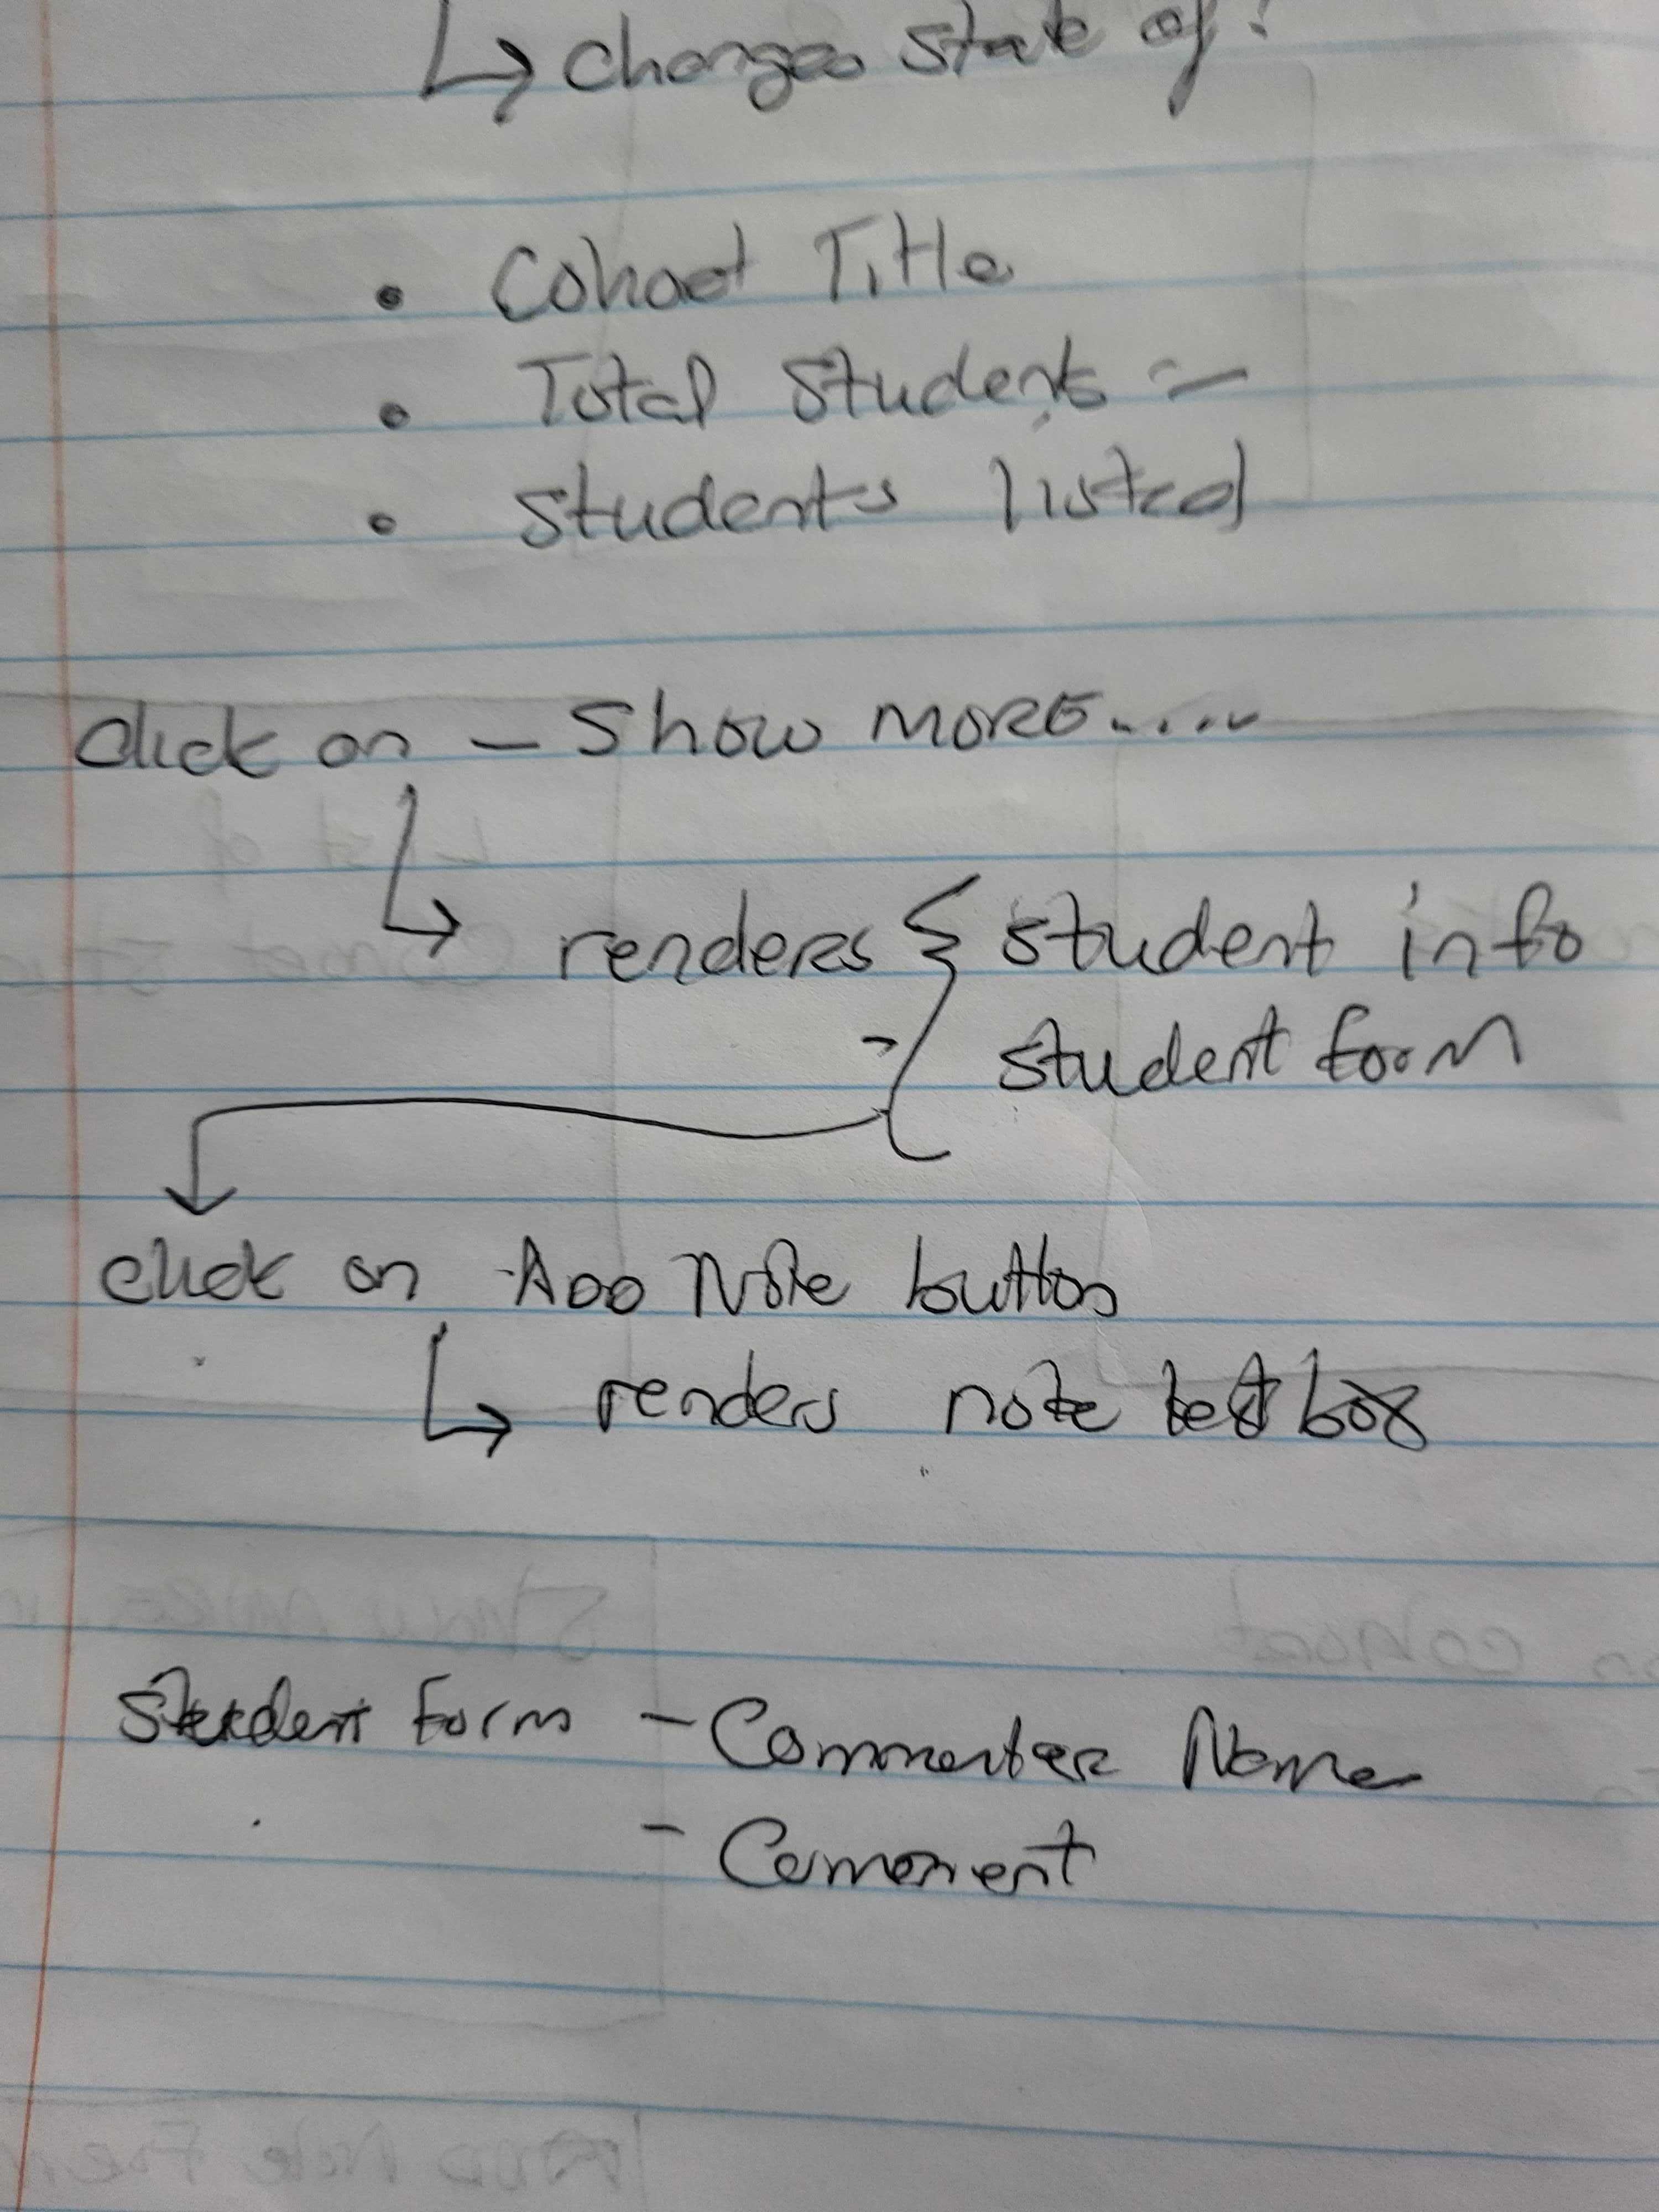 ↳ changes state of:
• Cohort Title
• Total Students =
• Students listed
Click on — Show MORE.....
↳ renders { student info
- student form
click on Add Note button
↳ renders note text box
Student Form - Commenter Name
- Comment